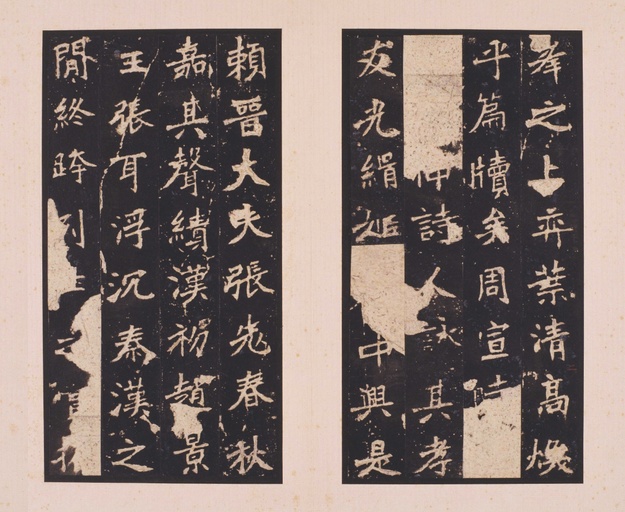 峯之上弈葉清高煥
乎篇牘矣周宣時
仲詩人詠其孝
友光緝姬中興是
賴晉大夫張老春秋
嘉其聲績漢初趙景
王張耳浮沉秦漢之
閒終跨列之